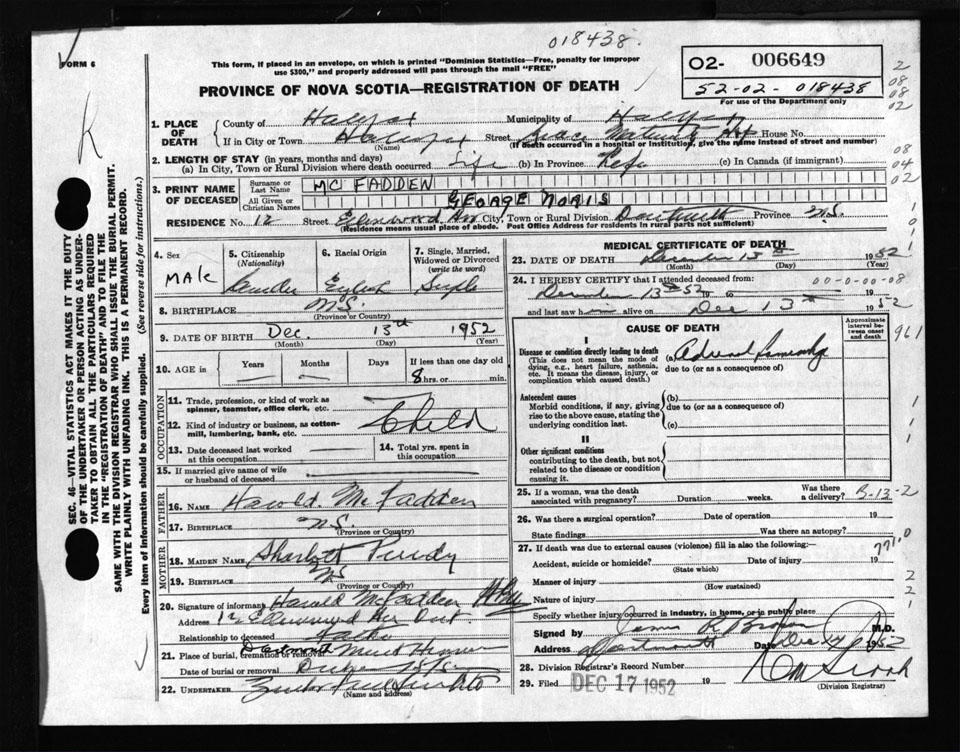 018438.
FORM 6
This form, if placed in an envelope, on which is printed "Dominion Statistics—Free, penalty for improper
use $300," and properly addressed will pass through the mail "FREE"
O2- 006649
52-02-018438
For use of the Department only
PROVINCE OF NOVA SCOTIA—REGISTRATION OF DEATH
1. PLACE OF DEATH
County of Halifax Municipality of Halifax
If in City or Town Halifax Street Grace Maternity House No.
(Name) (If death occurred in a hospital or institution, give the name instead of street and number)
2. LENGTH OF STAY (in years, months and days)
(a) In City, Town or Rural Division where death occurred Life (b) In Province Life (c) In Canada (if immigrant)
3. PRINT NAME OF DECEASED
Surname or Last Name MC FADDEN
All Given or Christian Names GEORGE NORIS
RESIDENCE No. 12 Street City, Town or Rural Division Dartmouth Province N.S.
(Residence means usual place of abode. Post Office Address for residents in rural parts not sufficient)
4. Sex MALE
5. Citizenship (Nationality)
6. Racial Origin English
7. Single, Married, Widowed or Divorced (write the word) Single
8. BIRTHPLACE N.S.
(Province or Country)
9. DATE OF BIRTH Dec. 13th 1952
(Month) (Day) (Year)
10. AGE in Years Months Days If less than one day old
8 hrs. or min.
OCCUPATION
11. Trade, profession, or kind of work as spinner, teamster, office clerk, etc.
12. Kind of industry or business, as cotton-mill, lumbering, bank, etc. Child
13. Date deceased last worked at this occupation
14. Total yrs. spent in this occupation
15. If married give name of wife or husband of deceased
FATHER
16. NAME Harold McFadden
17. BIRTHPLACE N.S.
(Province or Country)
MOTHER
18. MAIDEN NAME Purdy
19. BIRTHPLACE NS
(Province or Country)
20. Signature of informant Harold McFadden
Address 12
Relationship to deceased Father
21. Place of burial, cremation or removal Dartmouth Mount Hermon
Date of burial or removal
22. UNDERTAKER
(Name and address)
MEDICAL CERTIFICATE OF DEATH
23. DATE OF DEATH December 13th 1952
(Month) (Day) (Year)
24. I HEREBY CERTIFY that I attended deceased from: 00-0-00-08
December 13th 52 19 to 19
and last saw h alive on Dec 13th 1952
CAUSE OF DEATH
Approximate interval between onset and death
I
Disease or condition directly leading to death
(This does not mean the mode of dying, e.g., heart failure, asthenia, etc. It means the disease, injury, or complication which caused death.)
(a) Adrenal
due to (or as a consequence of)
Antecedent causes
Morbid conditions, if any, giving rise to the above cause, stating the underlying condition last.
(b)
due to (or as a consequence of)
(c)
II
Other significant conditions
contributing to the death, but not related to the disease or condition causing it.
25. If a woman, was the death associated with pregnancy? Duration weeks. Was there a delivery? B-13-2
26. Was there a surgical operation? Date of operation 19
State findings Was there an autopsy?
27. If death was due to external causes (violence) fill in also the following:— 771.0
Accident, suicide or homicide? Date of injury 19
(State which)
Manner of injury
(How sustained)
Nature of injury
Specify whether injury occurred in industry, in home, or in public place
Signed by James R Brown M.D.
Address Dartmouth Date 1952
28. Division Registrar's Record Number
29. Filed DEC 17 1952 19
(Division Registrar)
SEC. 46—VITAL STATISTICS ACT MAKES IT THE DUTY
OF THE UNDERTAKER OR PERSON ACTING AS UNDER-
TAKER TO OBTAIN ALL THE PARTICULARS REQUIRED
IN THE "REGISTRATION OF DEATH" AND TO FILE THE
SAME WITH THE DIVISION REGISTRAR WHO SHALL ISSUE THE BURIAL PERMIT.
WRITE PLAINLY WITH UNFADING INK. THIS IS A PERMANENT RECORD.
Every item of information should be carefully supplied. (See reverse side for instructions.)
2
08
08
02
08
04
02
1
0
1
1
961
1
1
1
2
2